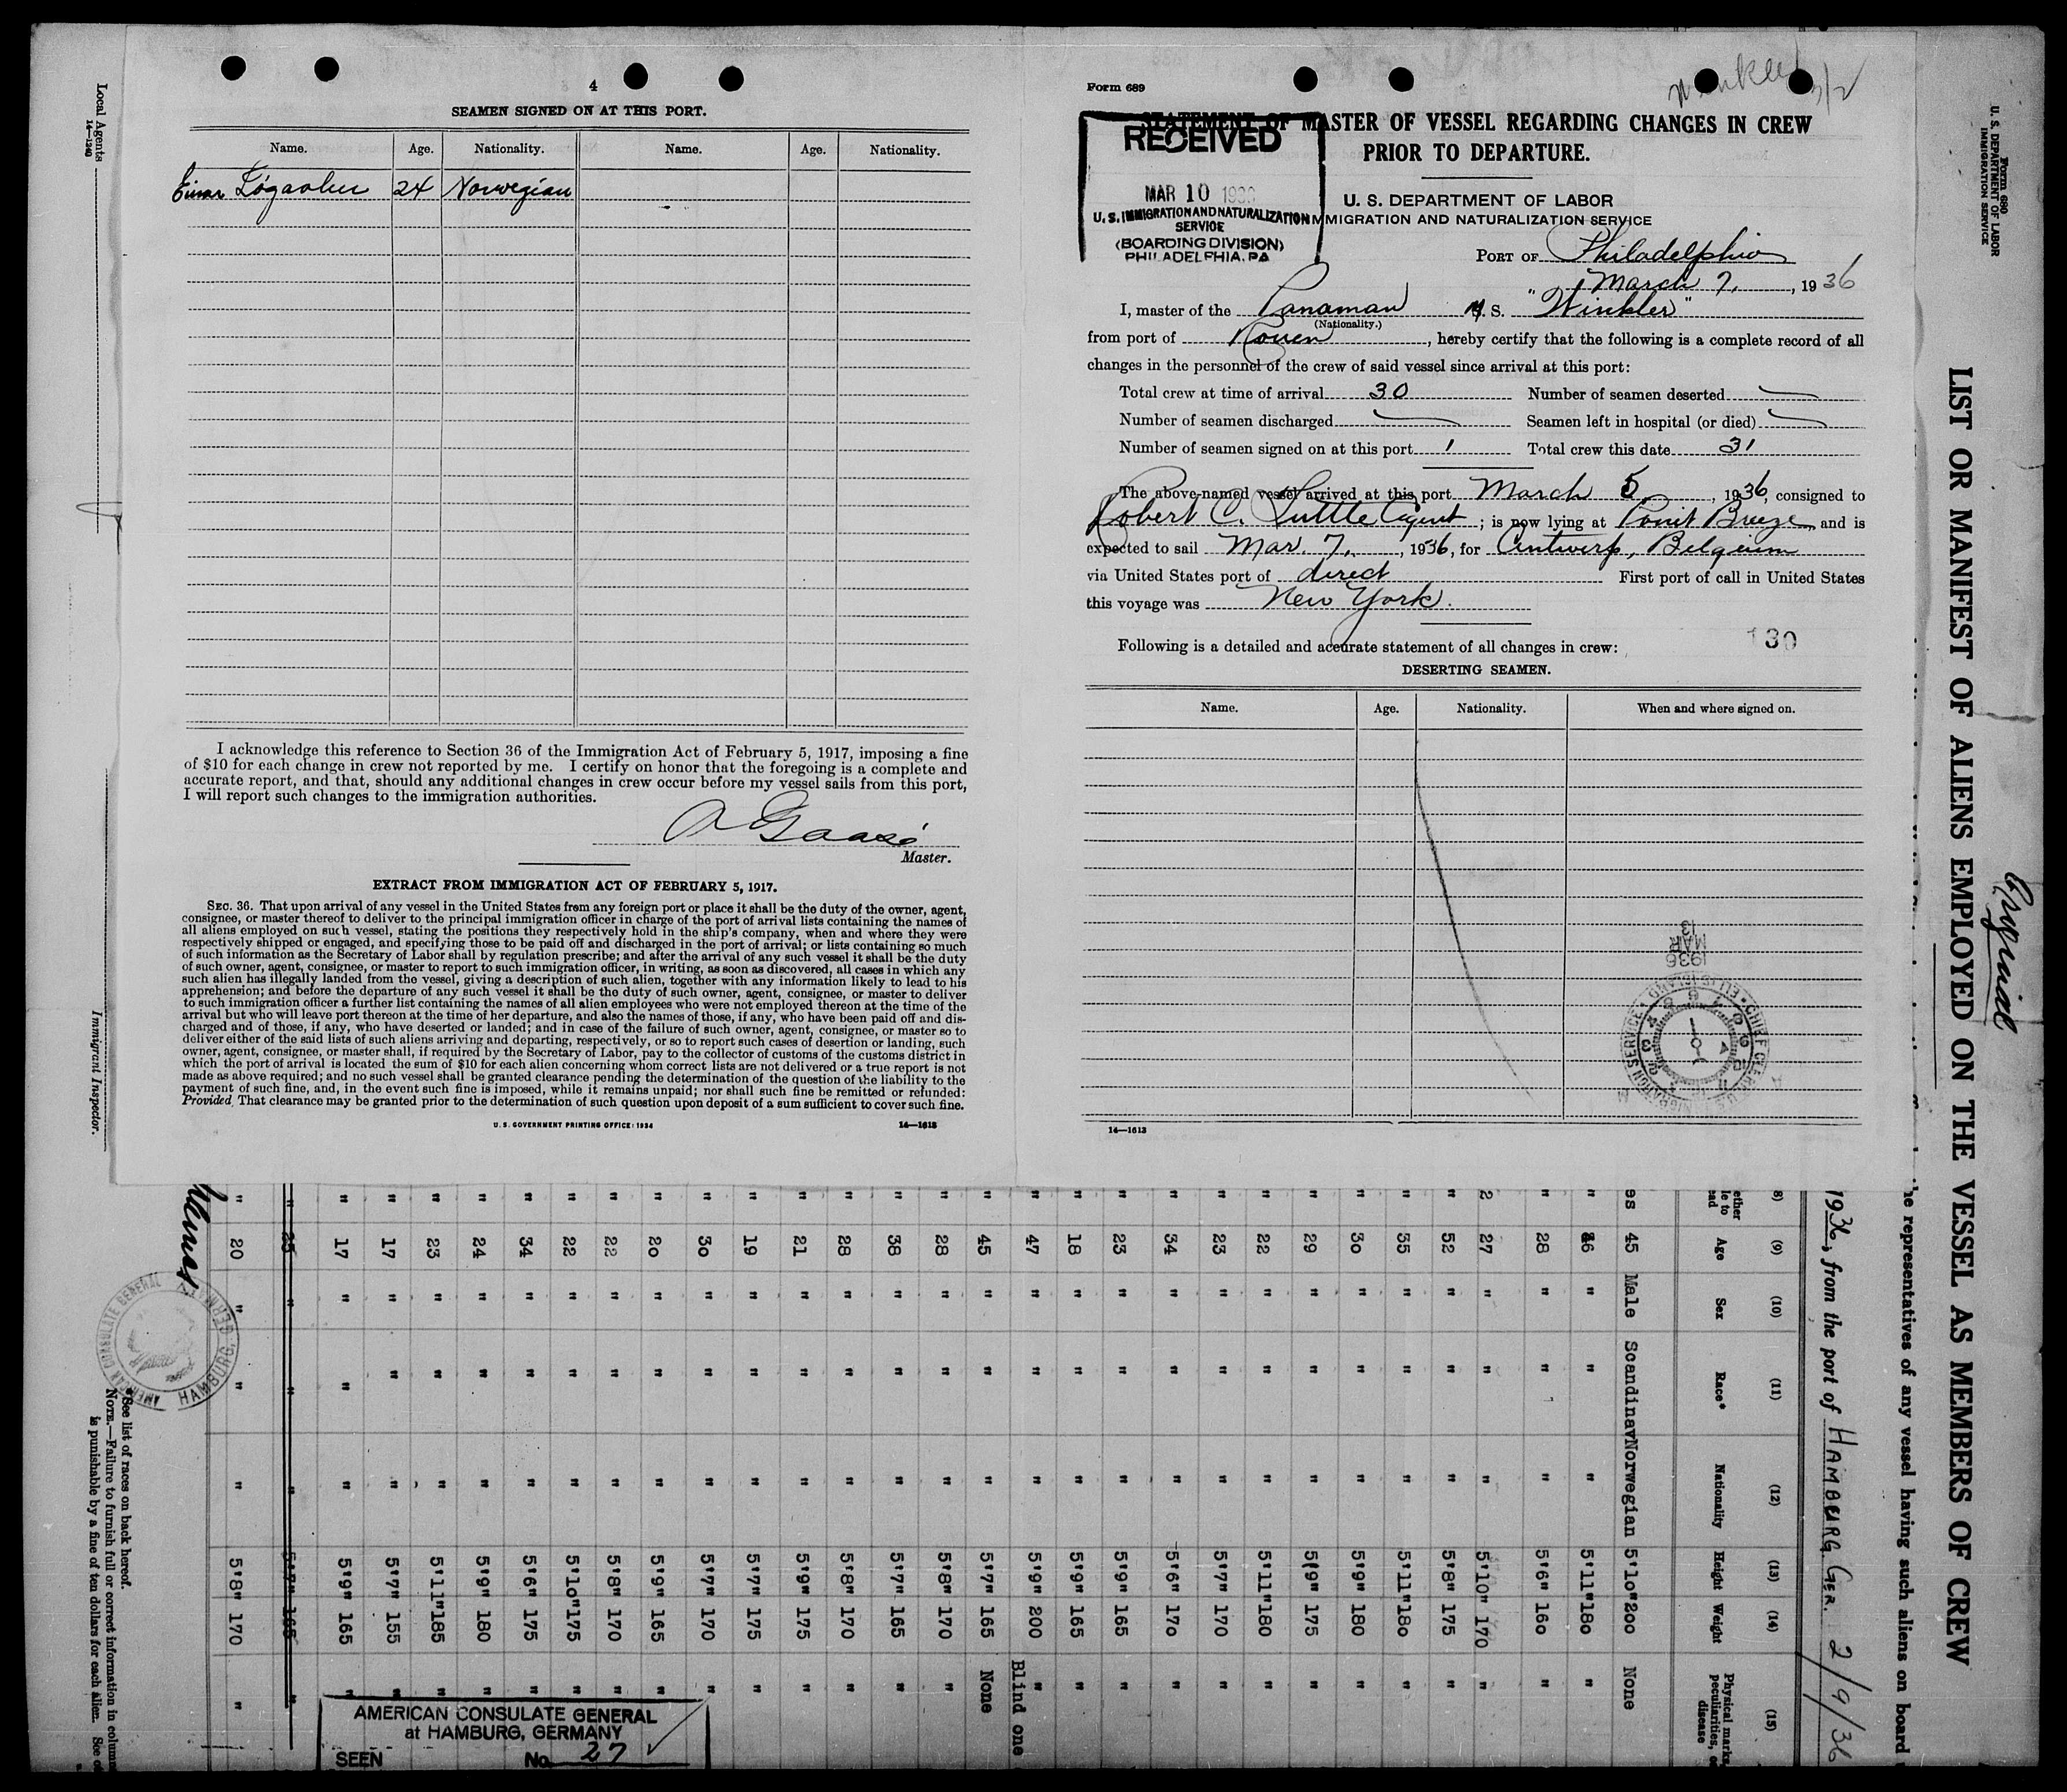 4
SEAMEN SIGNED ON AT THIS PORT.
Name. Age. Nationality. Name. Age. Nationality.
Einar 24 Norwegian
I acknowledge this reference to Section 36 of the Immigration Act of February 5, 1917, imposing a fine
of $10 for each change in crew not reported by me. I certify on honor that the foregoing is a complete and
accurate report, and that, should any additional changes in crew occur before my vessel sails from this port,
I will report such changes to the immigration authorities.
Master.
EXTRACT FROM IMMIGRATION ACT OF FEBRUARY 5, 1917.
SEC. 36. That upon arrival of any vessel in the United States from any foreign port or place it shall be the duty of the owner, agent,
consignee, or master thereof to deliver to the principal immigration officer in charge of the port of arrival lists containing the names of
all aliens employed on such vessel, stating the positions they respectively hold in the ship's company, when and where they were
respectively shipped or engaged, and specifying those to be paid off and discharged in the port of arrival; or lists containing so much
of such information as the Secretary of Labor shall by regulation prescribe; and after the arrival of any such vessel it shall be the duty
of such owner, agent, consignee, or master to report to such immigration officer, in writing, as soon as discovered, all cases in which any
such alien has illegally landed from the vessel, giving a description of such alien, together with any information likely to lead to his
apprehension; and before the departure of any such vessel it shall be the duty of such owner, agent, consignee, or master to deliver
to such immigration officer a further list containing the names of all alien employees who were not employed thereon at the time of the
arrival but who will leave port thereon at the time of her departure, and also the names of those, if any, who have been paid off and dis-
charged and of those, if any, who have deserted or landed; and in case of the failure of such owner, agent, consignee, or master so to
deliver either of the said lists of such aliens arriving and departing, respectively, or so to report such cases of desertion or landing, such
owner, agent, consignee, or master shall, if required by the Secretary of Labor, pay to the collector of customs of the customs district in
which the port of arrival is located the sum of $10 for each alien concerning whom correct lists are not delivered or a true report is not
made as above required; and no such vessel shall be granted clearance pending the determination of the question of the liability to the
payment of such fine, and, in the event such fine is imposed, while it remains unpaid; nor shall such fine be remitted or refunded:
Provided, That clearance may be granted prior to the determination of such question upon deposit of a sum sufficient to cover such fine.
U. S. GOVERNMENT PRINTING OFFICE: 1934 14—1613
Form 689
Winkler
STATEMENT OF MASTER OF VESSEL REGARDING CHANGES IN CREW
PRIOR TO DEPARTURE.
RECEIVED
MAR 10 193
U. S. IMMIGRATION AND NATURALIZATION
SERVICE
(BOARDING DIVISION)
PHILADELPHIA, PA
U. S. DEPARTMENT OF LABOR
IMMIGRATION AND NATURALIZATION SERVICE
PORT OF Philadelphia
March 7, , 1936
I, master of the Panaman M. S. "Winkler"
(Nationality.)
from port of Rouen , hereby certify that the following is a complete record of all
changes in the personnel of the crew of said vessel since arrival at this port:
Total crew at time of arrival 30 Number of seamen deserted
Number of seamen discharged Seamen left in hospital (or died)
Number of seamen signed on at this port 1 Total crew this date 31
The above-named vessel arrived at this port March 5 , 1936, consigned to
Robert C. Tuttle Agent ; is now lying at Point Breeze and is
expected to sail Mar. 7, , 1936, for Antwerp, Belgium
via United States port of direct First port of call in United States
this voyage was New York.
130
Following is a detailed and accurate statement of all changes in crew:
DESERTING SEAMEN.
Name. Age. Nationality. When and where signed on.
1936
MAR
13
14—1613
Local Agents
14—1240
Immigrant Inspector.
Form 680
U. S. DEPARTMENT OF LABOR
IMMIGRATION SERVICE
Original
LIST OR MANIFEST OF ALIENS EMPLOYED ON THE VESSEL AS MEMBERS OF CREW
the representatives of any vessel having such aliens on board
1936, from the port of HAMBURG. GER. 2/9/36
(9) (10) (11) (12) (13) (14) (15)
Age Sex Race* Nationality Height Weight Physical marks, peculiarities, or disease
es 45 Male Scandinav Norwegian 5'10" 200 None
" 36 " " " 5'11" 180 "
" 28 " " " 5'6" 160 "
2 27 " " " 5'10" 170 "
" 52 " " " 5'8" 175 "
" 35 " " " 5'11" 180 "
" 30 " " " 5'9" 180 "
" 29 " " " 5'9" 175 "
" 22 " " " 5'11" 180 "
" 23 " " " 5'7" 170 "
" 34 " " " 5'6" 170 "
" 23 " " " 5'9" 165 "
" 18 " " " 5'9" 165 "
" 47 " " " 5'9" 200 " Blind one
" 45 " " " 5'7" 165 None
" 28 " " " 5'8" 170 "
" 38 " " " 5'7" 165 "
" 28 " " " 5'8" 170 "
" 21 " " " 5'9" 175 "
" 19 " " " 5'7" 175 "
" 30 " " " 5'7" 170 "
" 20 " " " 5'9" 165 "
" 22 " " " 5'8" 170 "
" 22 " " " 5'10" 175 "
" 34 " " " 5'6" 175 "
" 24 " " " 5'9" 180 "
" 23 " " " 5'11" 185 "
" 17 " " " 5'7" 155 "
" 17 " " " 5'9" 165 "
" 25 " " " 5'7" 165 "
" 20 " " " 5'8" 170 "
AMERICAN CONSULATE GENERAL
HAMBURG, GERMANY
*See list of races on back hereof.
NOTE.—Failure to furnish full or correct information in column
is punishable by a fine of ten dollars for each alien. See
AMERICAN CONSULATE GENERAL
at HAMBURG, GERMANY
SEEN No. 27